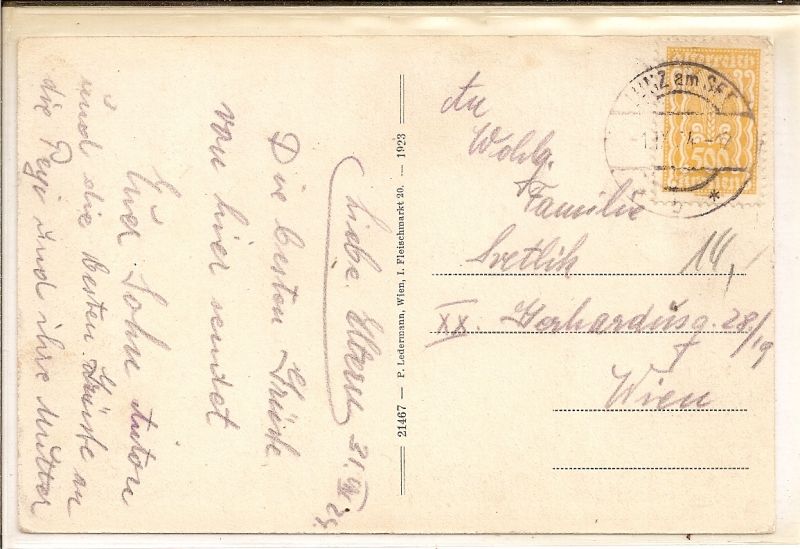 Liebe Eltern 21. IV 24.
Die besten Grüße
von hier sendet
Euer Sohn Anton
und die besten Grüße an
die Pepi und ihre Mutter
21467 — P. Ledermann, Wien, I. Fleischmarkt 20. — 1923
Österreich
500
Kronen
LUNZ am SEE
An
Wohlg.
Familie
Svetlik
14,
XX. Gerhardusg. 28/19
Wien